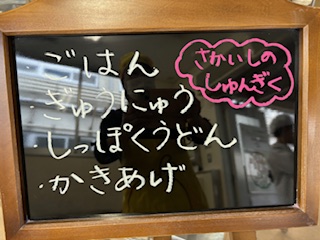 ごはん
ぎゅうにゅう
しっぽくうどん
・かきあげ
さかいしの
しゅんぎく